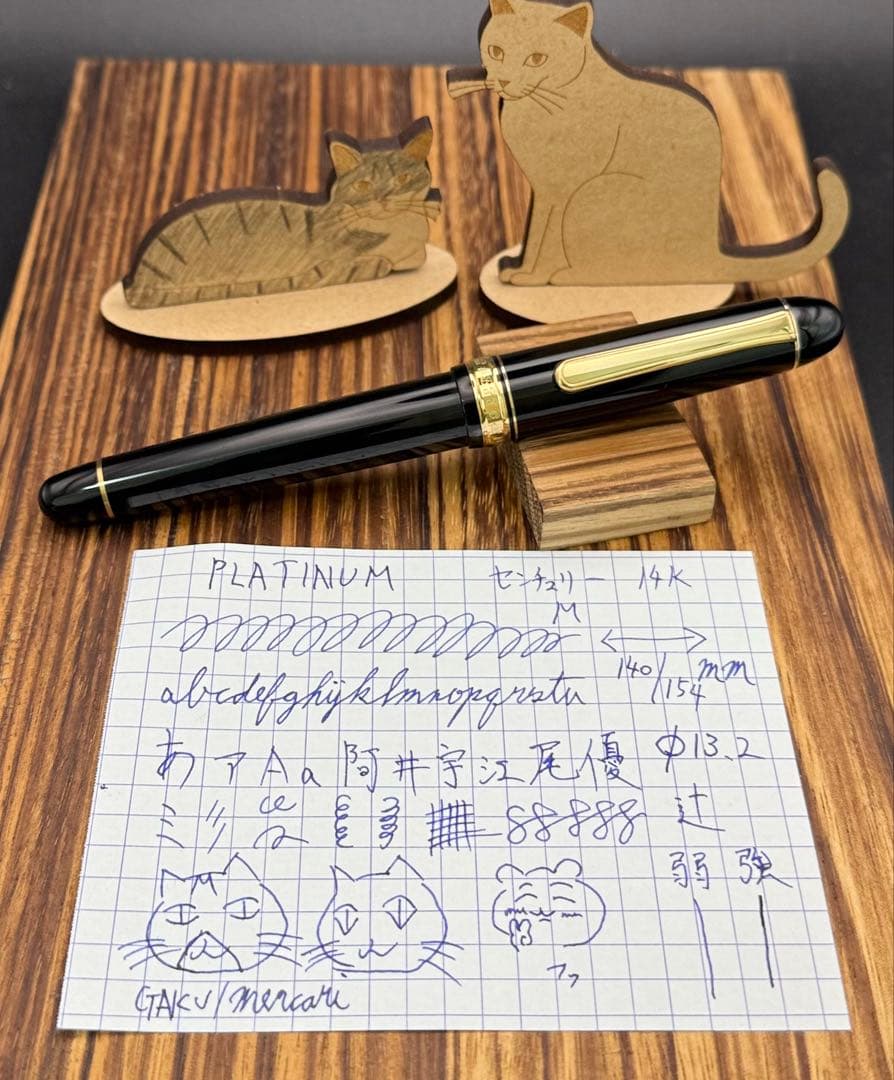 PLATINUM センチュリー 14K
M
abcdefghijklmnopqrstu 140/154mm
あ ア A a 阿 井 宇 江 尾 優 φ13.2
ミ 〃 88888 辻
弱 強
フフ
GAKU/mercari